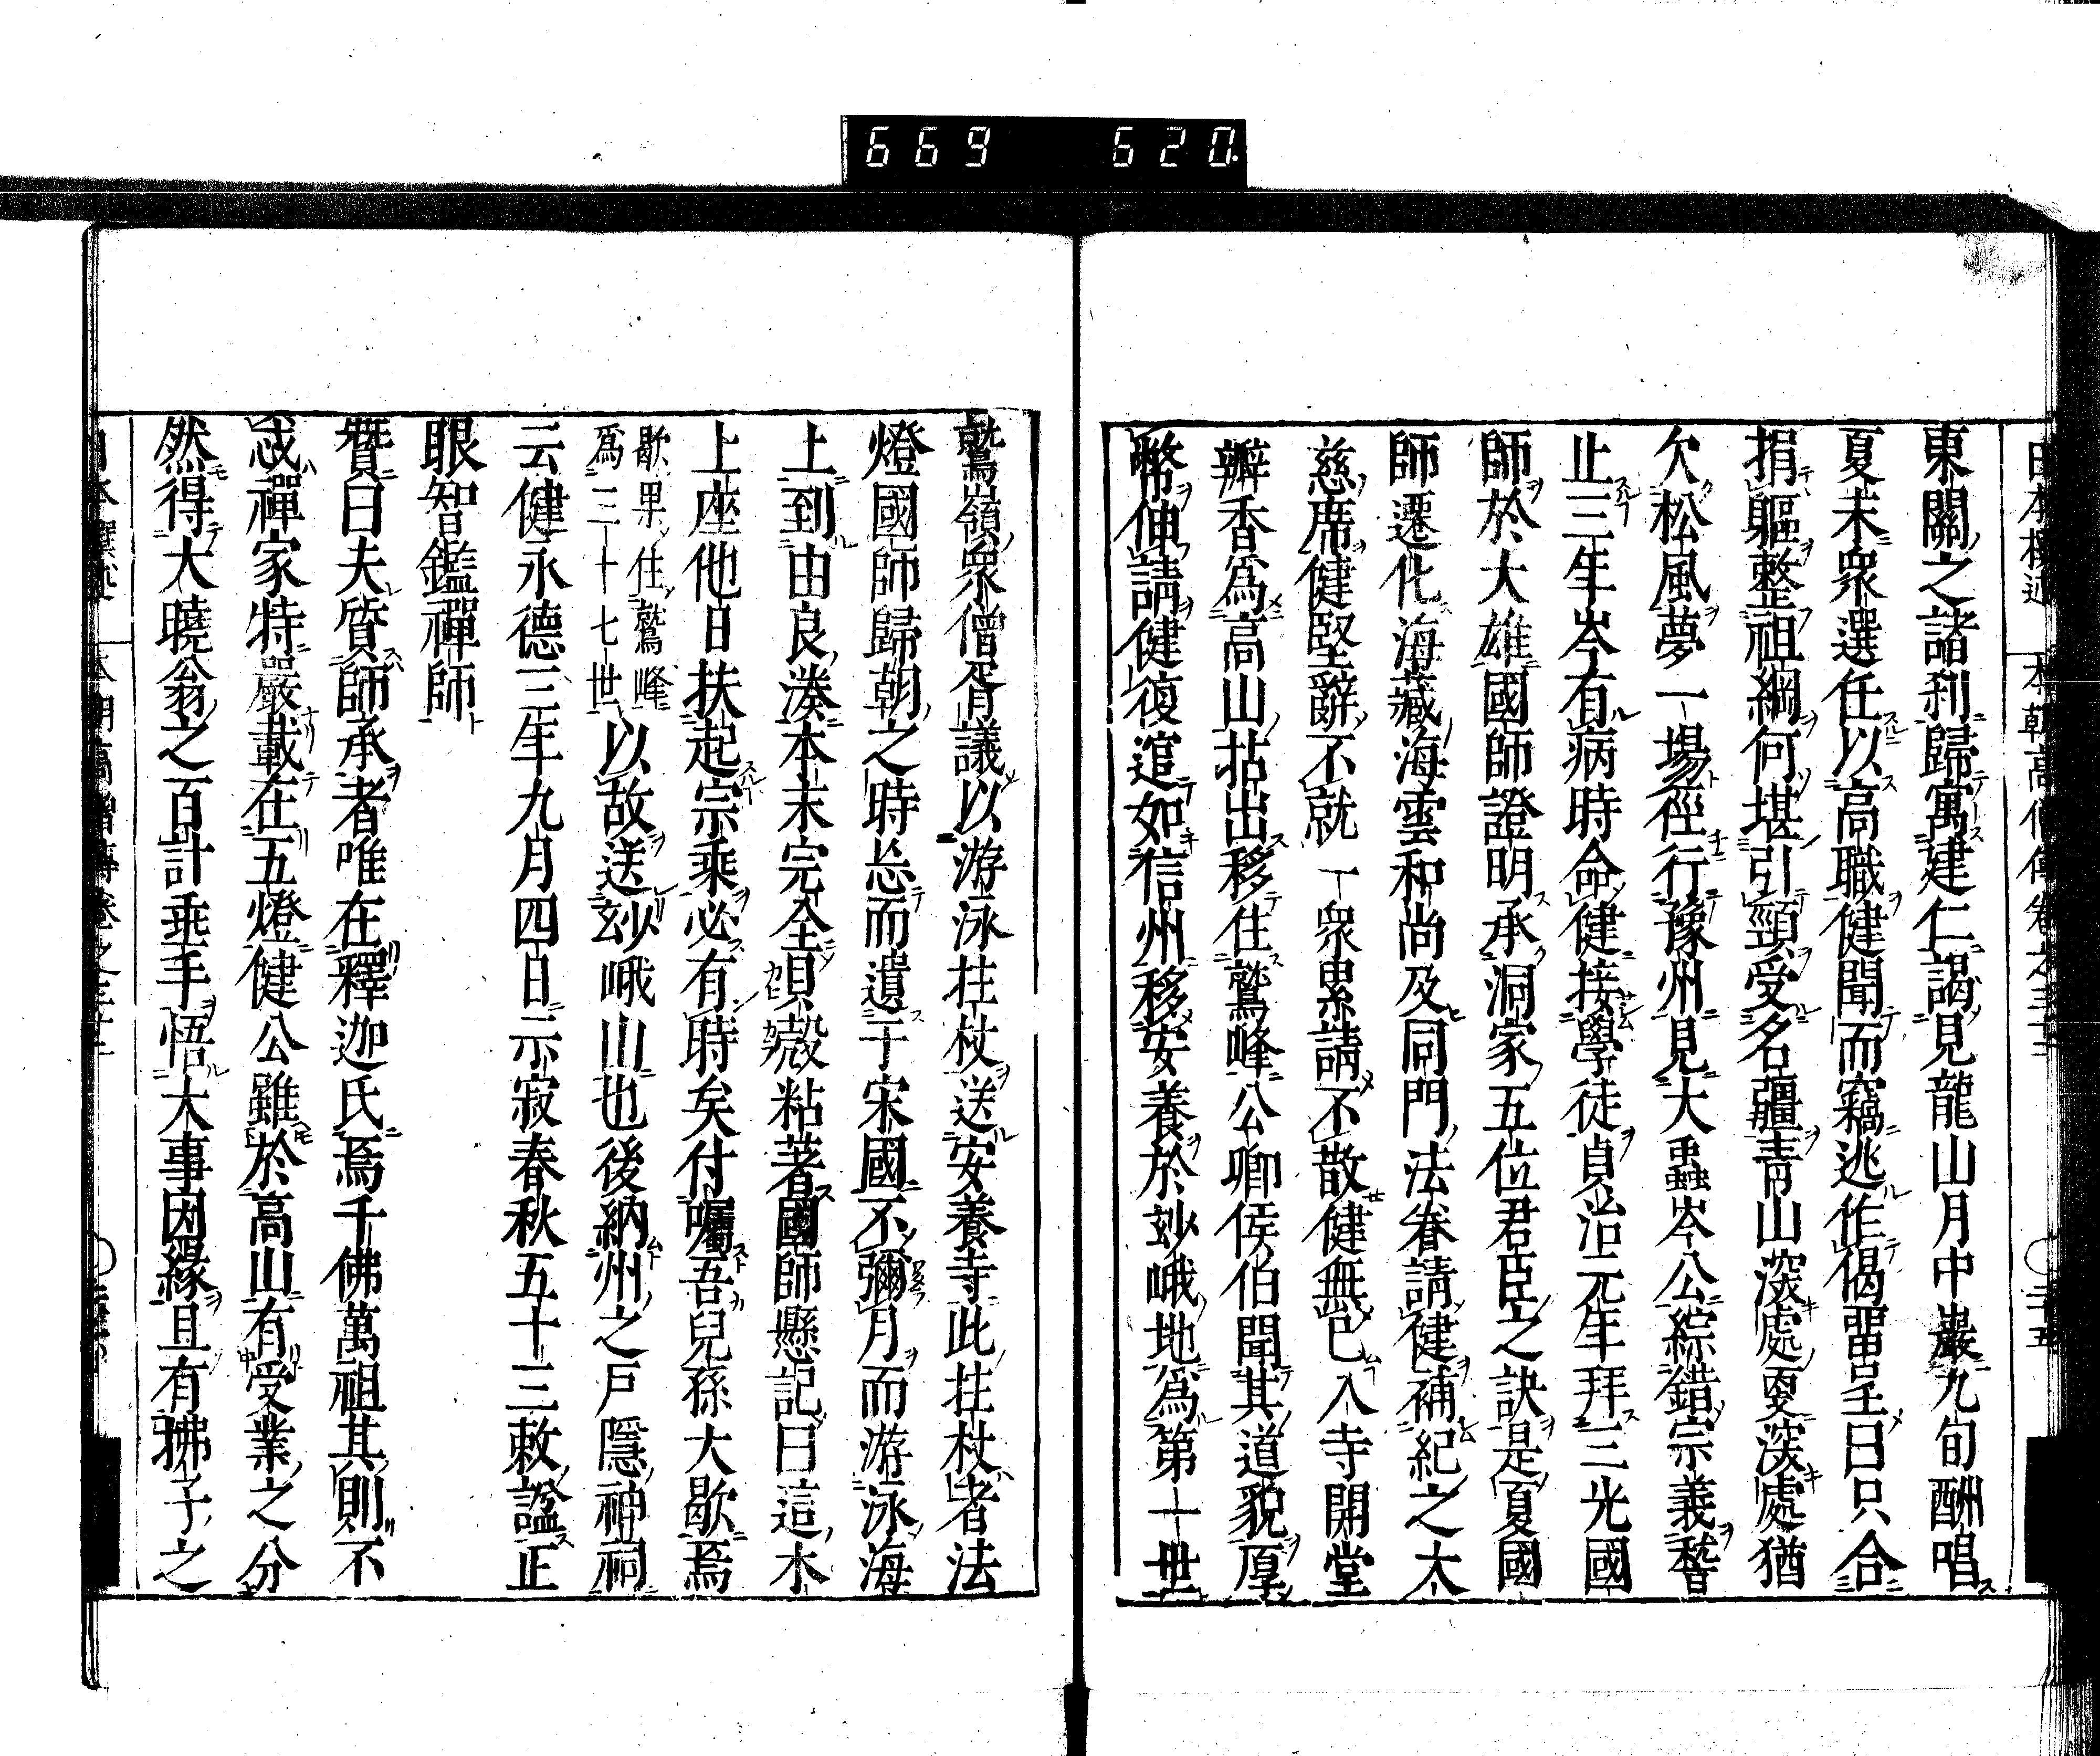 669 620.
東關之諸刹歸寓建仁謁見龍山月中巖九旬酬唱
夏末衆選任以高職健聞而竊逃作偈畱壬曰只合
捐軀整祖綱何堪引頸受名疆靑山深處更深處猶
欠松風夢一場徑行豫州見大蟲岑公綜錯宗義稽
止三年岑有病時命健接學徒貞治元年拜三光國
師於大雄國師證明承洞家五位君臣之訣是夏國
師遷化海藏海雲和尚及同門法眷請健補紀之大
慈席健堅辭不就一衆累請不散健無已入寺開堂
瓣香爲高山拈出移住鷲峰公卿侯伯聞其道貌厚
幣伸請健復逭如信州移安養於玅峨地爲第一世
鷲嶺衆僧胥議以游泳拄杖送安養寺此拄杖者法
燈國師歸朝之時忘而遺于宋國不彌月而游泳海
上到由良湊本末完全貝殼粘著國師懸記曰這木
上座他日扶起宗乘必有時矣付囑吾兒孫大歇焉
歇果住鷲峰爲三十七世以故送玅峨山也後納州之戶隱神祠
云健永德三年九月四日示寂春秋五十三敕謚正
眼智鑑禪師
贊曰夫質師承者唯在釋迦氏焉千佛萬祖其則不
忒禪家特嚴載在五燈健公雖於高山有受業之分
然得大曉翁之百計垂手悟大事因緣且有拂子之